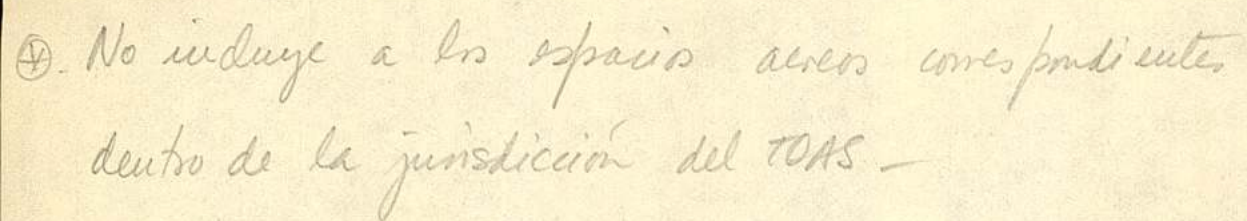 ⊛. No incluye a los espacios aereos correspondientes
dentro de la jurisdicción del TOAS -